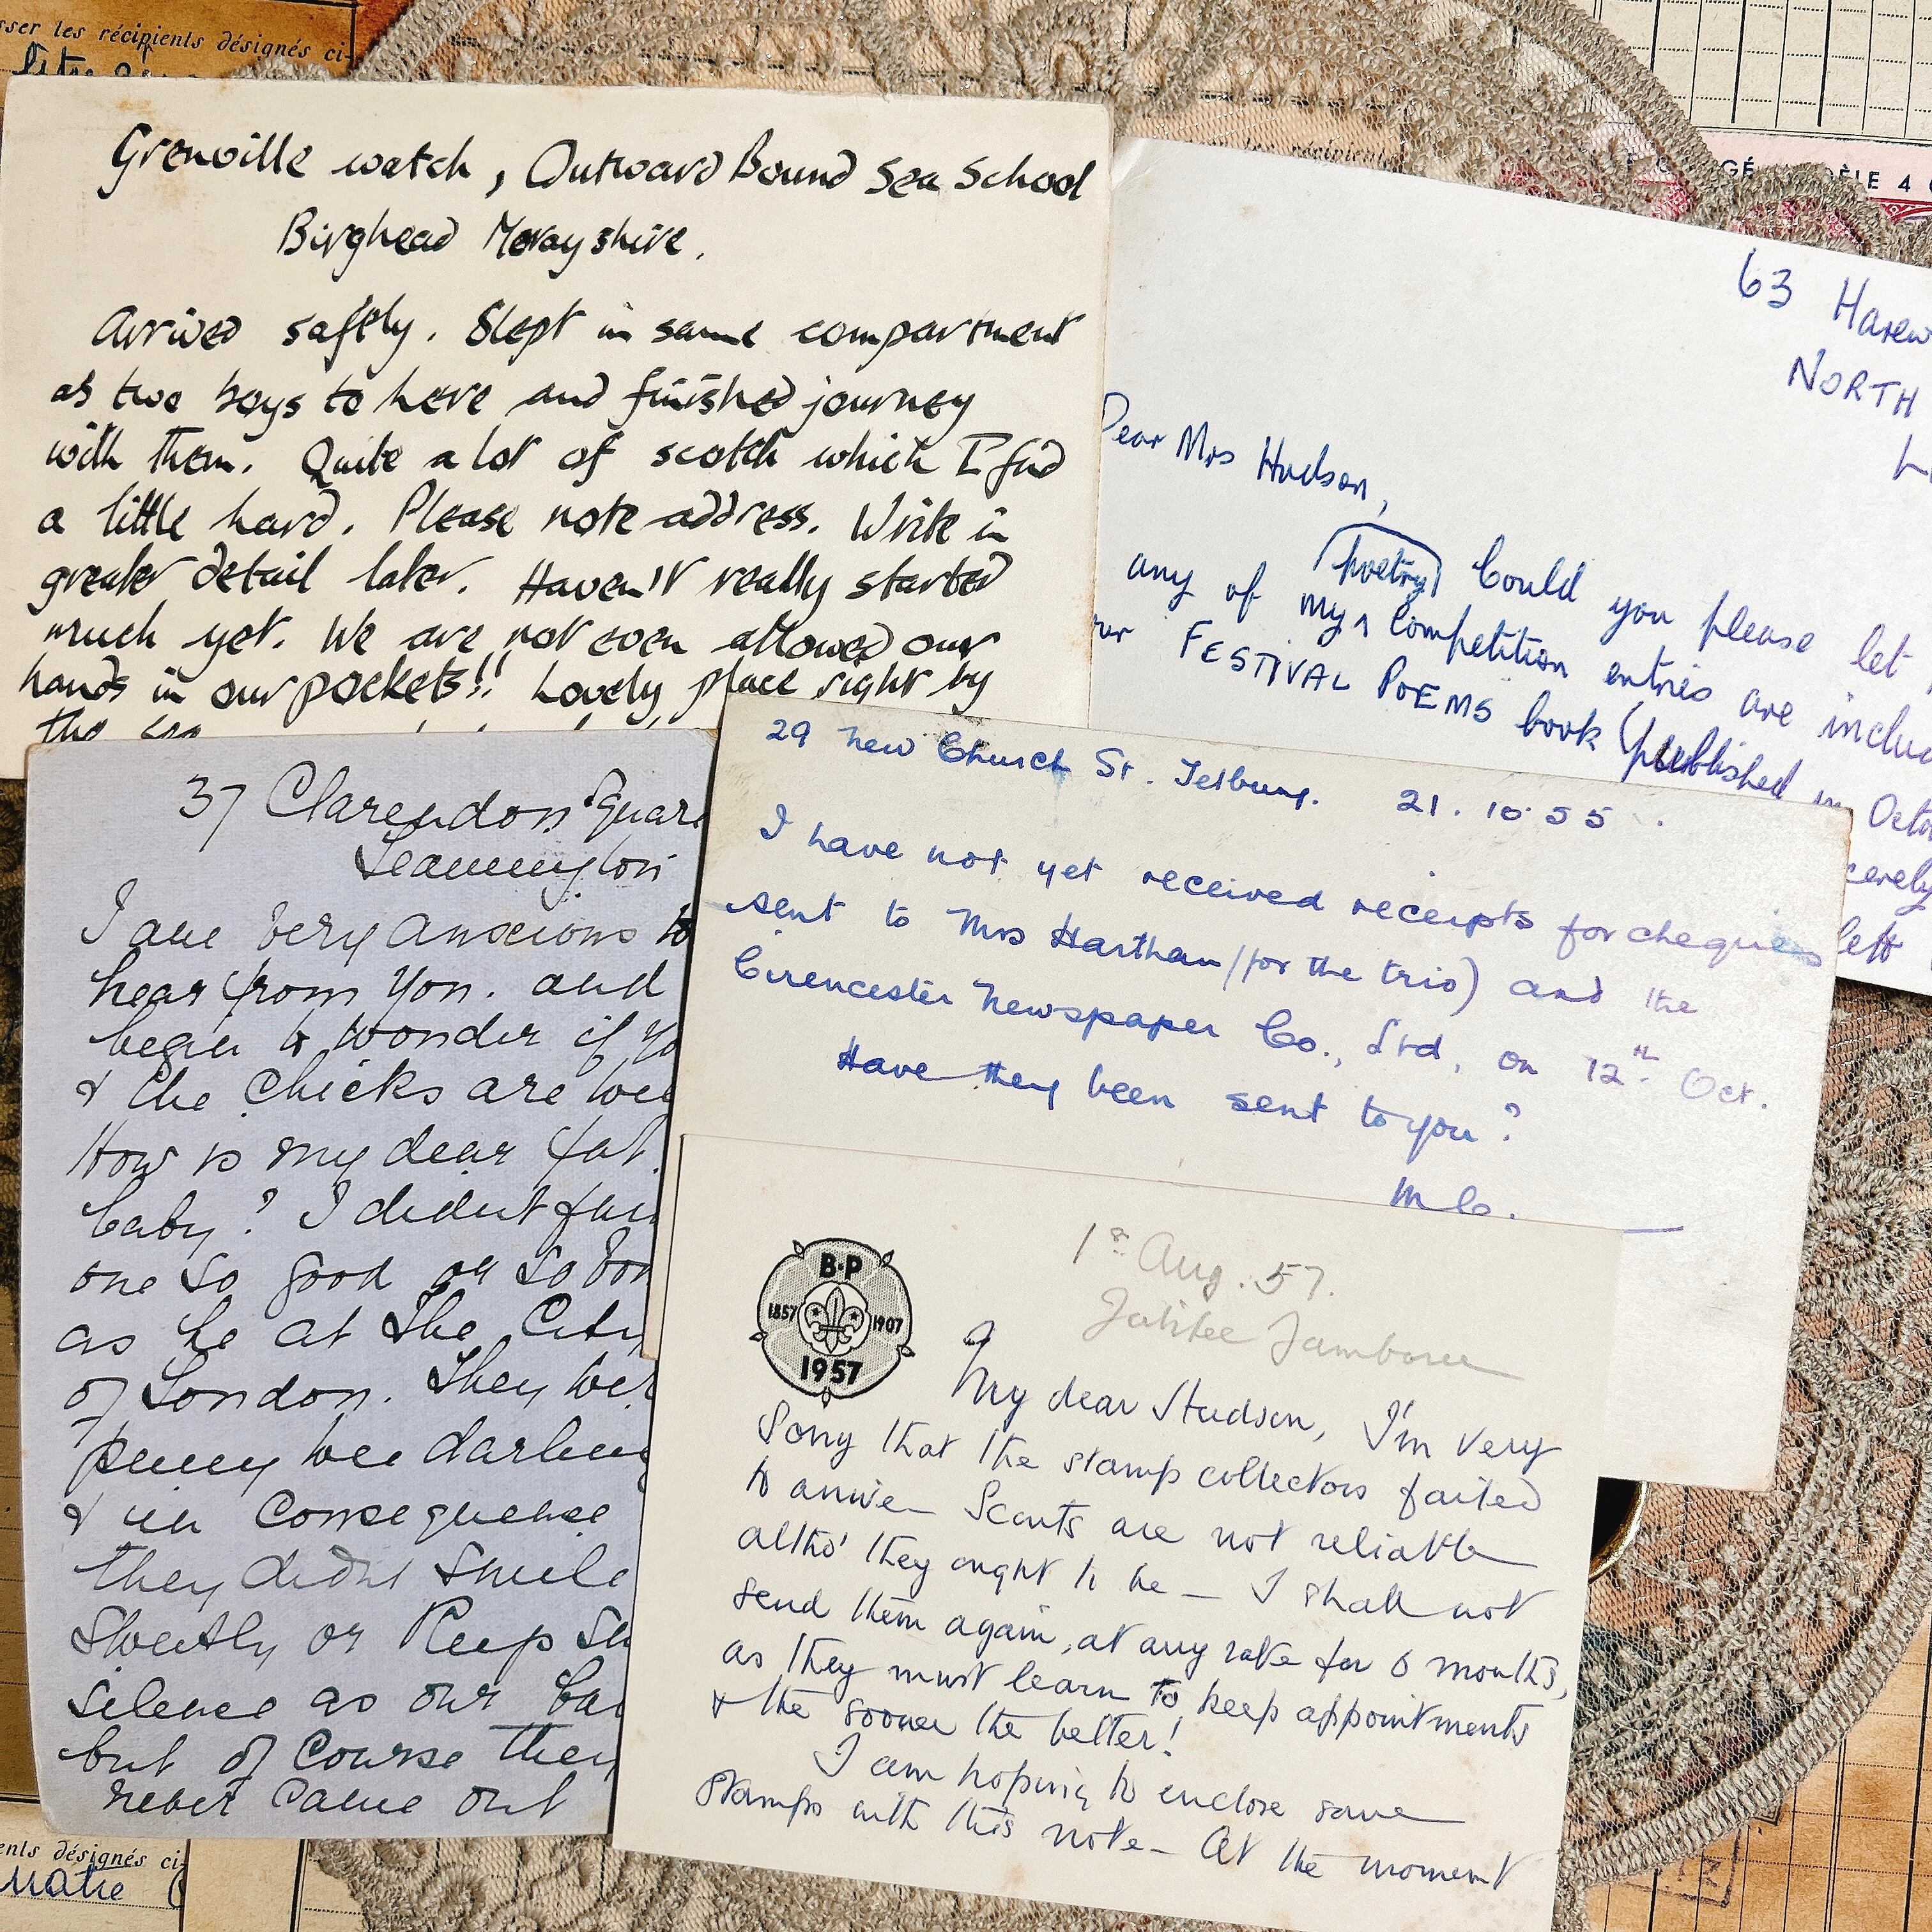 sser les récipients désignés ci-
Grenville watch, Outward Bound Sea School
Burghead Morayshire.
Arrived safely. Slept in same compartment
as two boys to here and finished journey
with them. Quite a lot of scotch which I find
a little hard. Please note address. Write in
greater detail later. Haven't really started
much yet. We are not even allowed our
hands in our pockets!! Lovely place right by
the sea
ÈLE 4
63 Harew
NORTH
L
Dear Mrs Hudson,
Could you please let
any of my poetry Competition entries are includ
FESTIVAL POEMS book (published in Octo
cerely
left
37 Clarendon Square
Leamington
I am very anxious to
hear from you. and
begin to wonder if yo
& the Chicks are wel
How is my dear fat
baby? I didn't fin
one so good or so bon
as he at The City
of London. They wer
puny wee darling
& in Consequence
they didnt smile
Sweetly or Keep su
silence as our ba
but of Course they
never came out
29 New Church St. Tetbury. 21.10.55.
I have not yet received receipts for cheques
sent to Mrs Hartham (for the trio) and the
Cirencester Newspaper Co., Ltd, on 12th Oct.
Have they been sent to you?
M Co.
B-P
1857 1907
1957
1st Aug. 57.
Jubilee Jamboree
My dear Hudson, I'm very
Sorry that the stamp collectors failed
to arrive – Scouts are not reliable
altho' they ought to be – I shall not
send them again, at any rate for 6 months,
as they must learn to keep appointments
& the sooner the better!
I am hoping to enclose some
stamps with this note – At the moment
ents désignés ci-